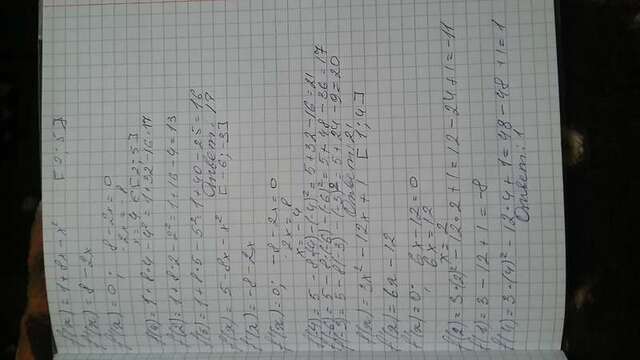 f(x) = 1 + 8x - x² [2; 5]
f'(x) = 8 - 2x
f'(x) = 0; 8 - 2x = 0
-2x = -8
x = 4 ∈ [2; 5]
f(4) = 1 + 8·4 - 4² = 1 + 32 - 16 = 17
f(2) = 1 + 8·2 - 2² = 1 + 16 - 4 = 13
f(5) = 1 + 8·5 - 5² = 1 + 40 - 25 = 16
Ответ: 17
f(x) = 5 - 8x - x² [-6; -3]
f'(x) = -8 - 2x
f'(x) = 0; -8 - 2x = 0
2x = 8
x = -4
f(-4) = 5 - 8(-4) - (-4)² = 5 + 32 - 16 = 21
f(-6) = 5 - 8(-6) - (-6)² = 5 + 48 - 36 = 17
f(-3) = 5 - 8(-3) - (-3)² = 5 + 24 - 9 = 20
Ответ: 21
f(x) = 3x² - 12x + 1 [1; 4]
f'(x) = 6x - 12
f'(x) = 0; 6x - 12 = 0
6x = 12
x = 2
f(2) = 3·(2)² - 12·2 + 1 = 12 - 24 + 1 = -11
f(1) = 3 - 12 + 1 = -8
f(4) = 3·(4)² - 12·4 + 1 = 48 - 48 + 1 = 1
Ответ: 1